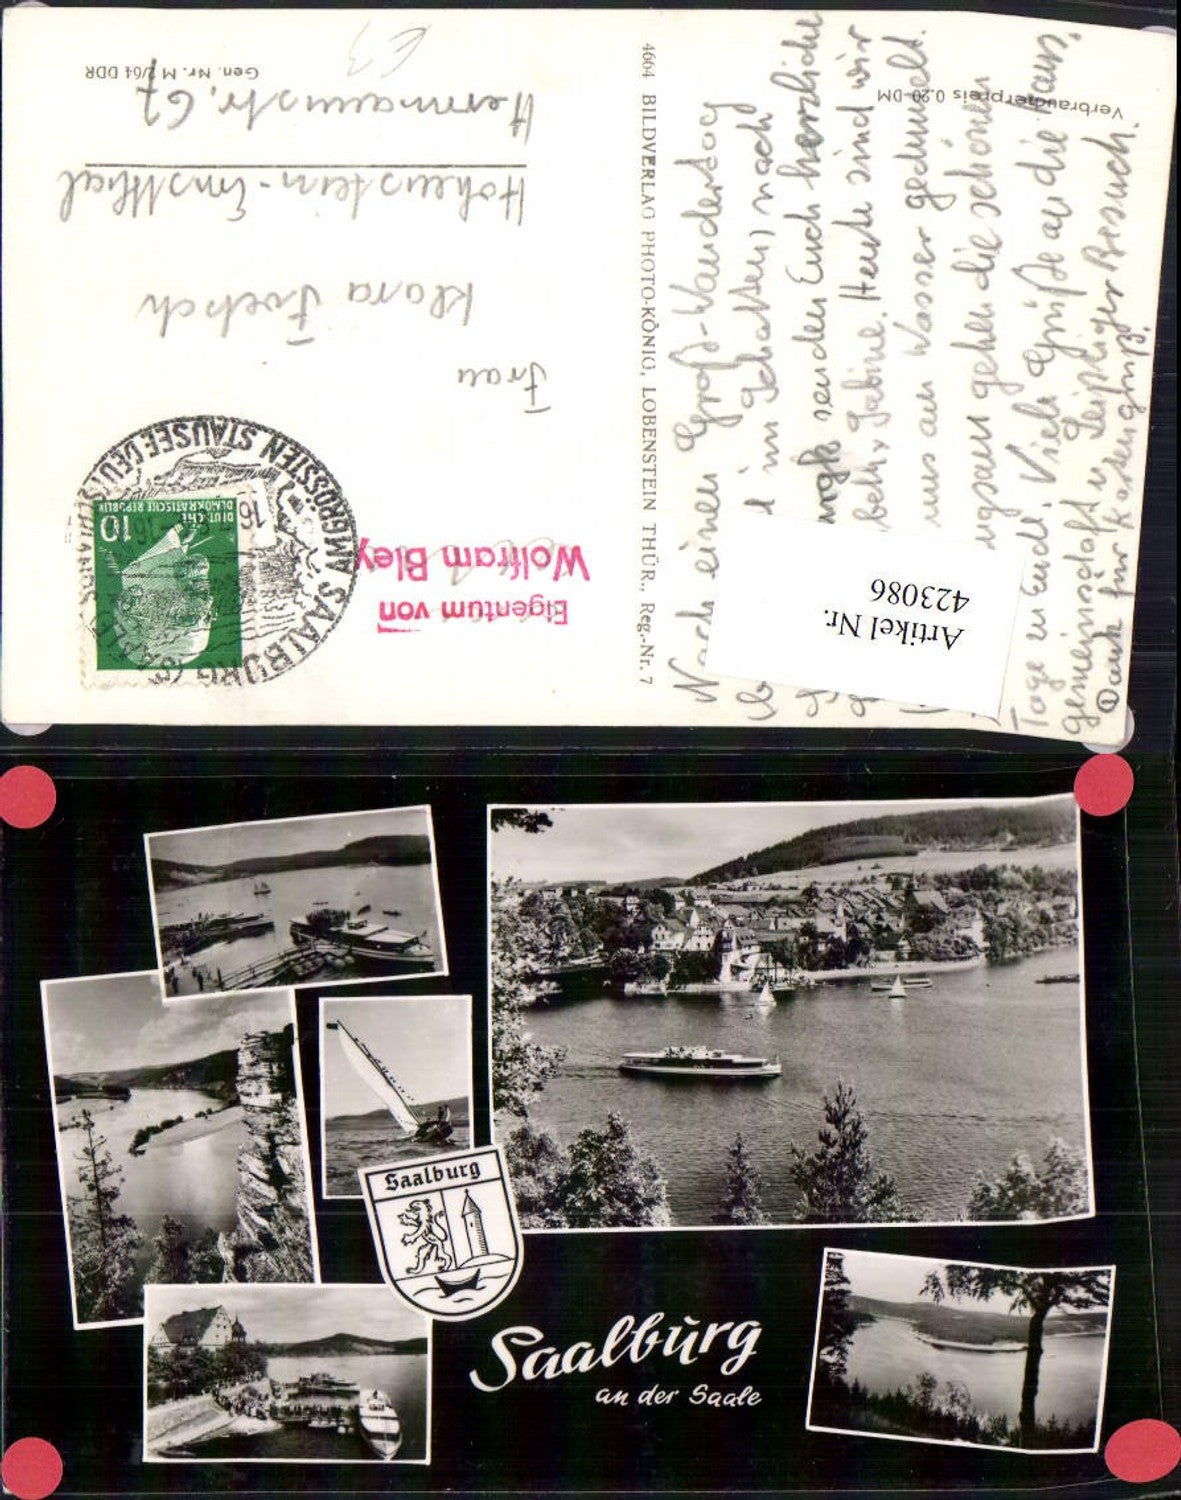 Nach einen Groß-Wandertag
im Schatten) nach
senden Euch herzliche
Sabine. Heute sind wir
uns am Wasser getummelt.
gehen die schönen
Tage zu Ende. Viele Grüße an die Haus-
gemeinschaft u. Leipziger Besuch.
Dank für Kartengruß.
Verbraucherpreis 0,20 DM
4664 BILDVERLAG PHOTO-KÖNIG, LOBENSTEIN THÜR., Reg.-Nr. 7
Artikel Nr.
423086
Eigentum von
Wolfram Bley
DEUTSCHE
DEMOKRATISCHE REPUBLIK
10
SAALBURG (SAALE)
AM GRÖSSTEN STAUSEE DEUTSCHLANDS
16
Frau
Klara
Hohenstein-Ernstthal
Hermannstr. 67
Gen. Nr. M 2/64 DDR
Saalburg
Saalburg
an der Saale